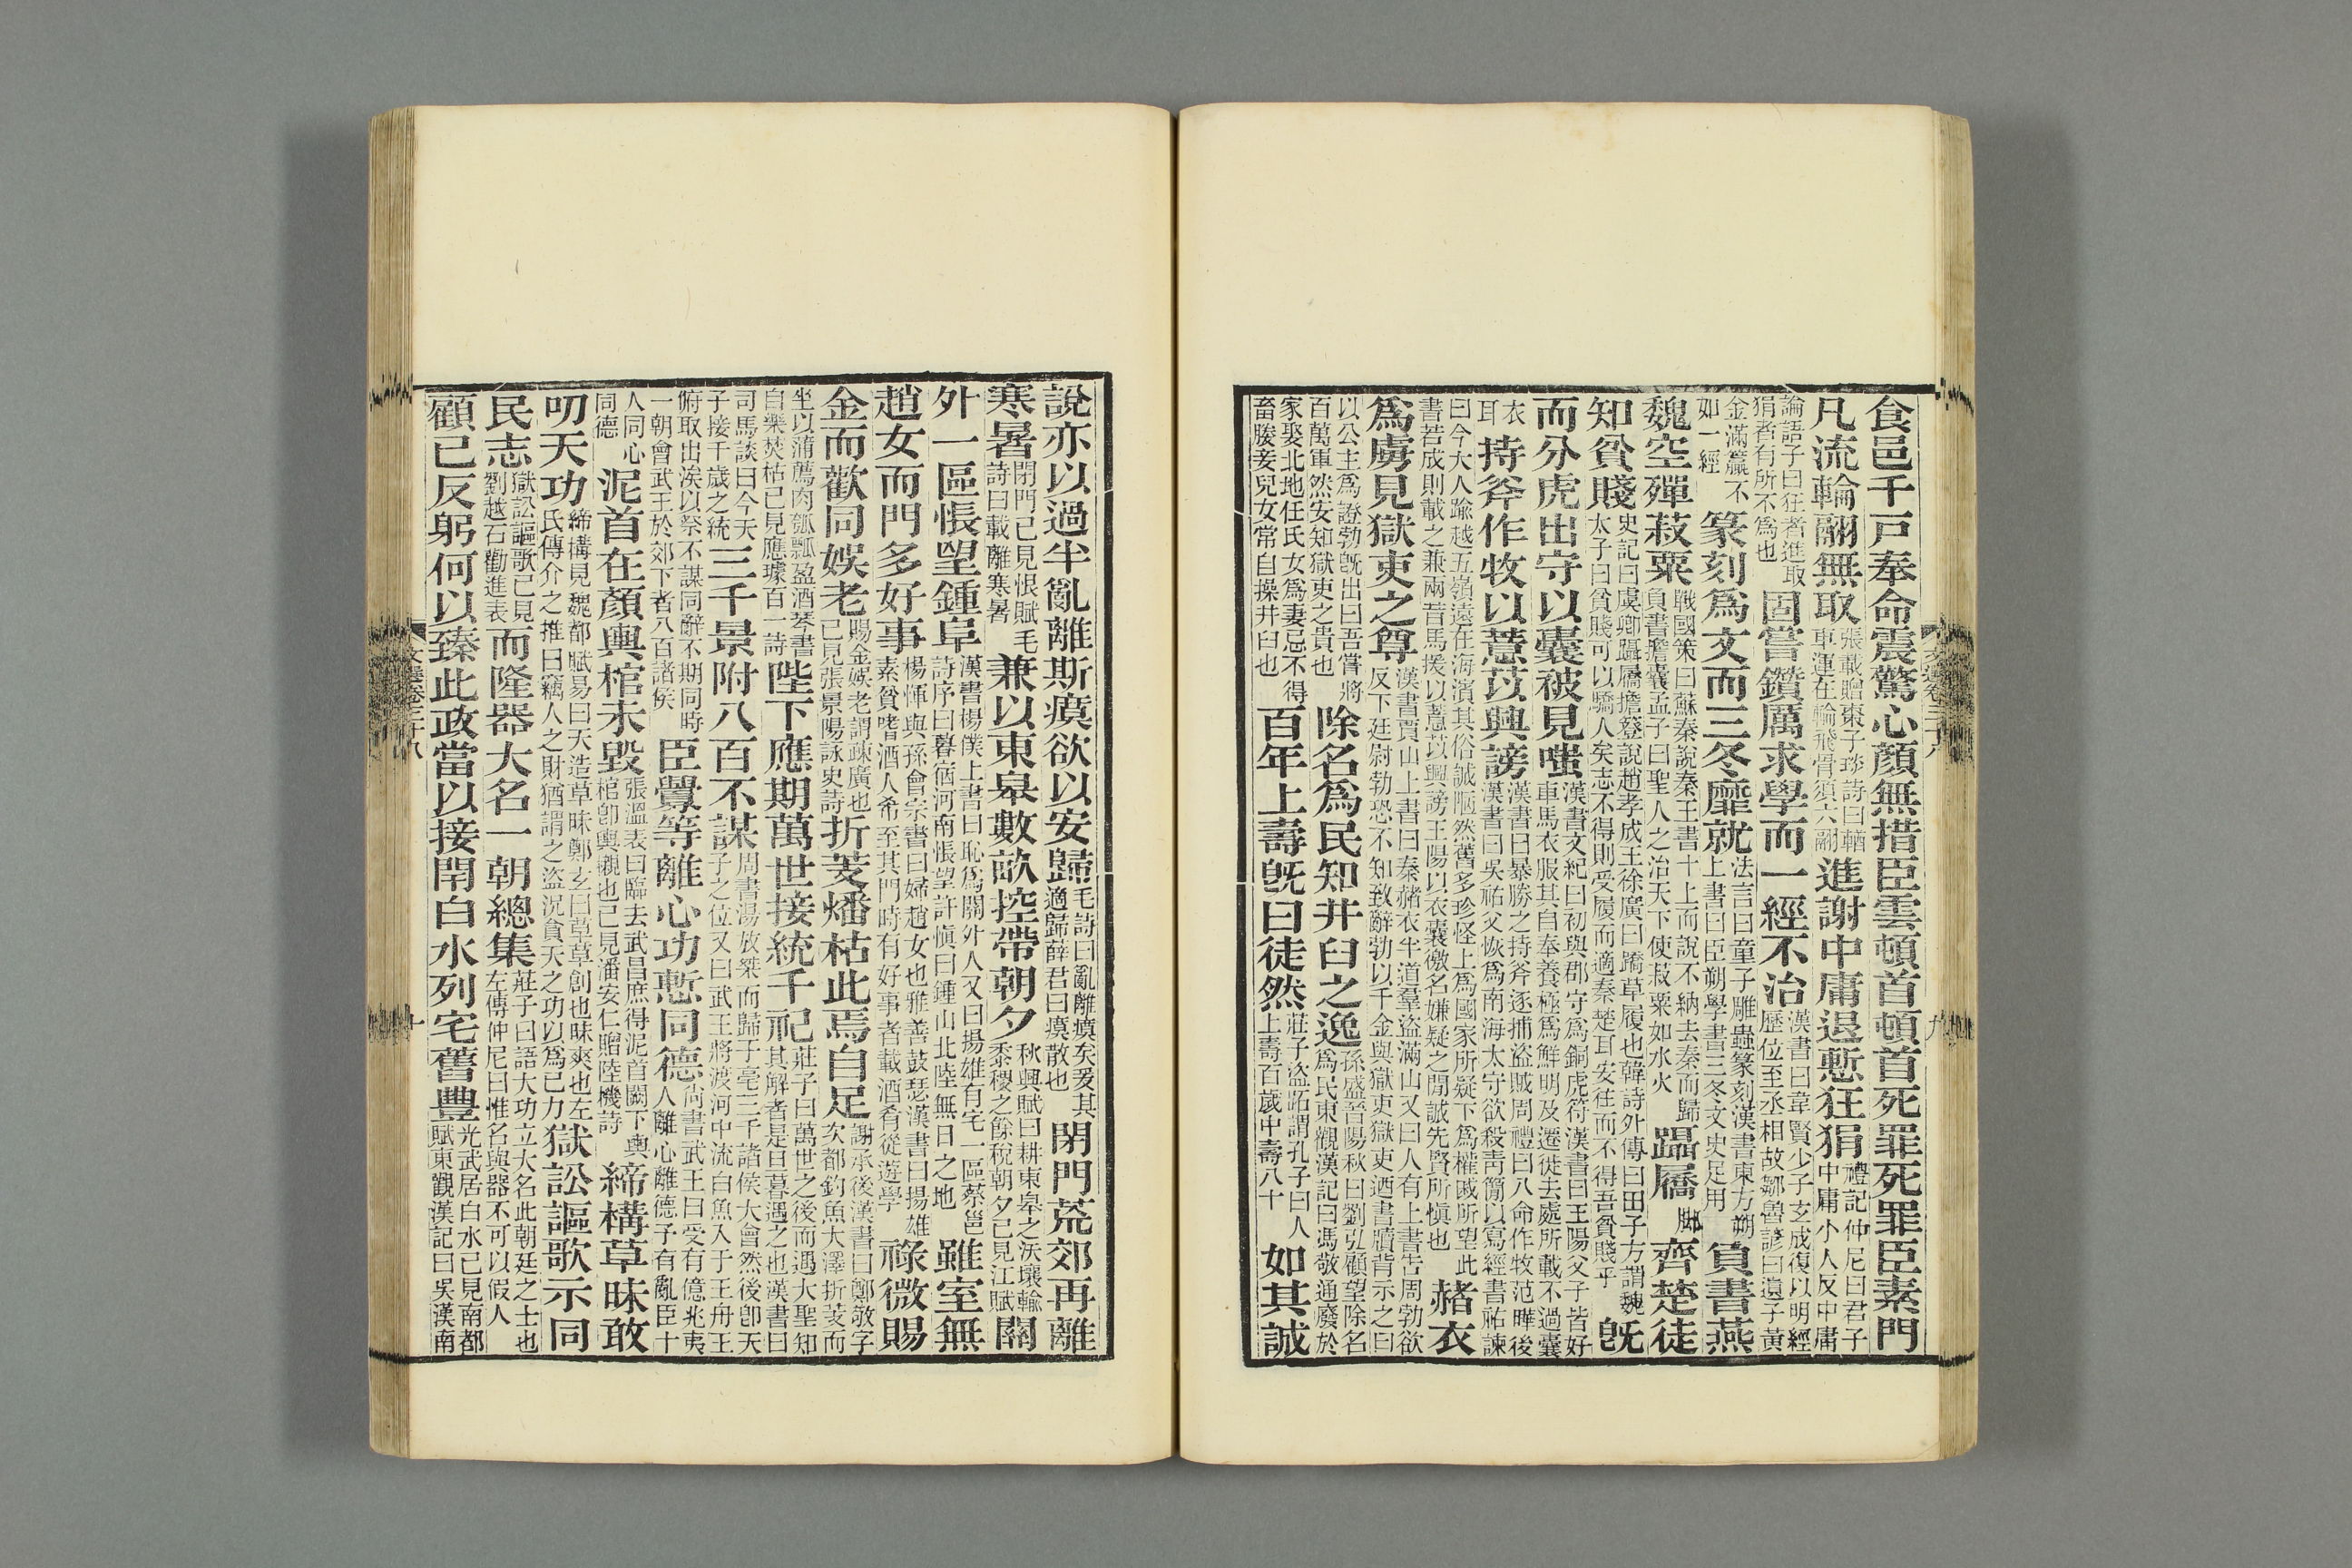 食邑千戸奉命震驚心顏無措臣雲頓首頓首死罪死罪臣素門
凡流輪翮無取張載贈棗子琰詩曰輶車運在輪飛骨須六翮進謝中庸退慙狂狷禮記仲尼曰君子中庸小人反中庸
論語子曰狂者進取狷者有所不為也固嘗鑽厲求學而一經不治漢書曰韋賢少子玄成復以明經歷位至丞相故鄒魯諺曰遺子黃
金滿籯不如一經篆刻為文而三冬靡就法言曰童子雕蟲篆刻漢書東方朔上書曰臣朔學書三冬文史足用負書燕
魏空殫菽粟戰國策曰蘇秦說秦王書十上而說不納去秦而歸負書擔囊孟子曰聖人之治天下使菽粟如水火躡屩齊楚徒
知貧賤史記曰虞卿躡屩擔簦說趙孝成王徐廣曰蹻草履也韓詩外傳曰田子方謂魏太子曰貧賤可以驕人矣志不得則受履而適秦楚耳安往而不得吾貧賤乎既
而分虎出守以囊被見嗤漢書文紀曰初與郡守為銅虎符漢書曰王陽父子皆好車馬衣服其自奉養極為鮮明及遷徙去處所載不過囊
衣耳持斧作牧以薏苡興謗漢書曰暴勝之持斧逐捕盜賊周禮曰八命作牧范曄後漢書曰吳祐父恢為南海太守欲殺青簡以寫經書祐諫
曰今大人踰越五嶺遠在海濱其俗誠陋然舊多珍怪上為國家所疑下為權戚所望此書若成則載之兼兩昔馬援以薏苡興謗王陽以衣囊徼名嫌疑之閒誠先賢所慎也赭衣
為虜見獄吏之尊漢書賈山上書曰秦赭衣半道羣盜滿山又曰人有上書告周勃欲反下廷尉勃恐不知致辭勃以千金與獄吏獄吏迺書牘背示之曰
以公主為證勃既出曰吾嘗將百萬軍然安知獄吏之貴也除名為民知井臼之逸孫盛晉陽秋曰劉弘顧望除名為民東觀漢記曰馮敬通廢於
家娶北地任氏女為妻忌不得畜媵妾兒女常自操井臼也百年上壽既曰徒然莊子盜跖謂孔子曰人上壽百歲中壽八十如其誠
說亦以過半亂離斯瘼欲以安歸毛詩曰亂離瘼矣爰其適歸薛君曰瘼散也閉門荒郊再離
寒暑閉門已見恨賦毛詩曰載離寒暑兼以東皋數畝控帶朝夕秋興賦曰耕東皋之沃壤輸黍稷之餘稅朝夕已見江賦關
外一區悵望鍾阜漢書楊僕上書曰恥為關外人又曰揚雄有宅一區蔡邕詩序曰暮宿河南悵望許慎曰鍾山北陸無日之地雖室無
趙女而門多好事楊惲與孫會宗書曰婦趙女也雅善鼓瑟漢書曰揚雄素貧嗜酒人希至其門時有好事者載酒肴從遊學祿微賜
金而歡同娛老賜金娛老謂疎廣也已見張景陽詠史詩折芰燔枯此焉自足謝承後漢書曰鄭敬字次都釣魚大澤折芰而
坐以蒲薦肉瓠瓢盈酒琴書自樂焚枯已見應璩百一詩陛下應期萬世接統千祀莊子曰萬世之後而遇大聖知其解者是旦暮遇之也漢書曰
司馬談曰今天子接千歲之統三千景附八百不謀周書湯放桀而歸于亳三千諸侯大會然後即天子之位又曰武王將渡河中流白魚入于王舟王
俯取出涘以祭不謀同辭不期同時一朝會武王於郊下者八百諸侯臣釁等離心功慙同德尚書武王曰受有億兆夷人離心離德予有亂臣十
人同心同德泥首在顏輿棺未毀張溫表曰臨去武昌庶得泥首闕下輿棺即輿櫬也已見潘安仁贈陸機詩締構草昧敢
叨天功締構見魏都賦易曰天造草昧鄭玄曰草草創也昧爽也左氏傳介之推曰竊人之財猶謂之盜況貪天之功以為己力獄訟謳歌示同
民志獄訟謳歌已見劉越石勸進表而隆器大名一朝總集莊子曰語大功立大名此朝廷之士也左傳仲尼曰惟名與器不可以假人
顧己反躬何以臻此政當以接閈白水列宅舊豐光武居白水已見南都賦東觀漢記曰吳漢南
文選卷三十八
十